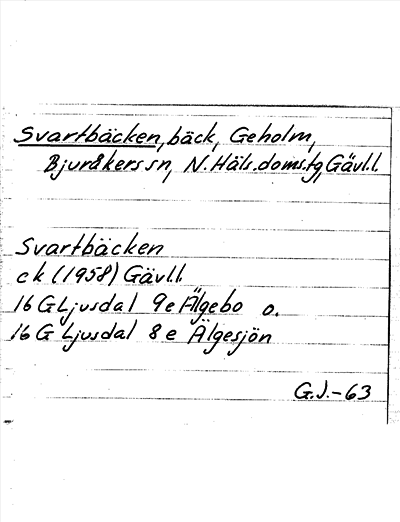 Svartbäcken, bäck, Geholm,
Bjuråkers sn, N. Häls. doms. tg, Gävl.l.
Svartbäcken
ek (1958) Gävl.l.
16 G Ljusdal 9e Älgebo o.
16 G Ljusdal 8e Älgesjön
G.J.-63